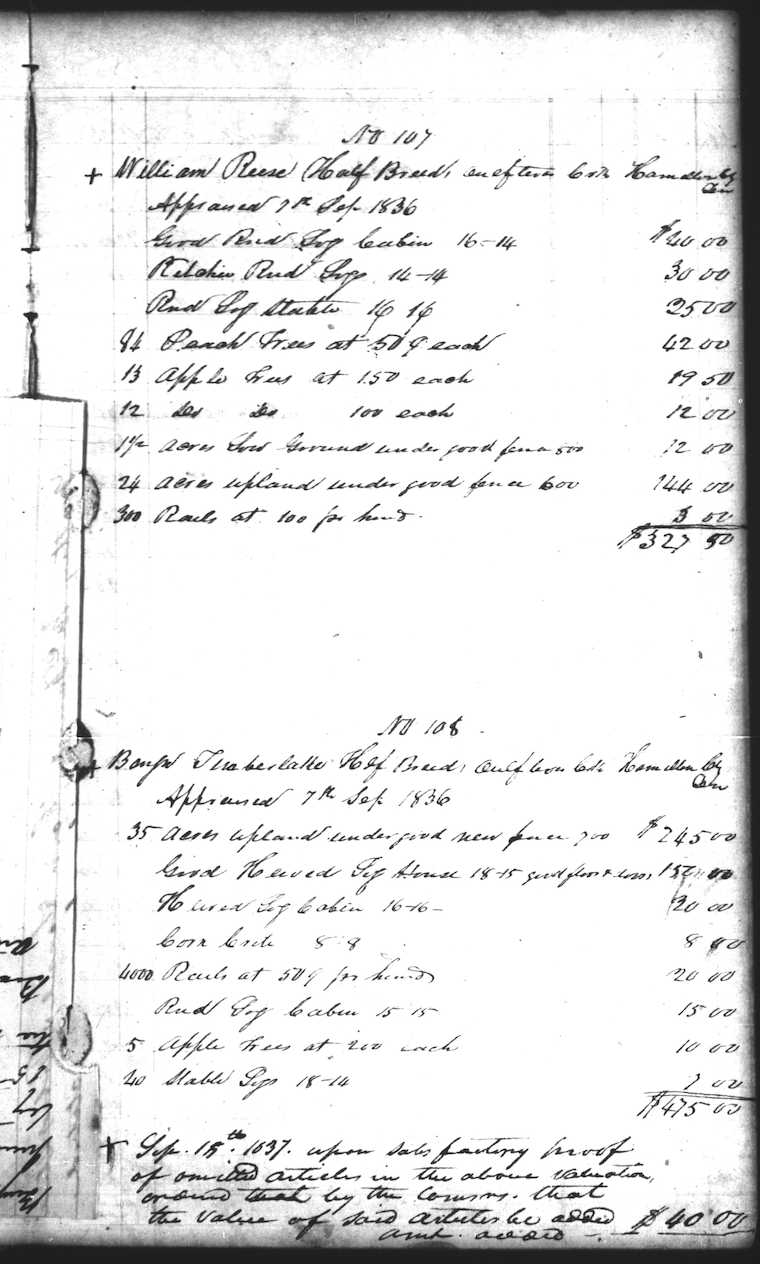 No 107
+ William Reese Half Breed Hamilton Cty
Ten
Appraised 7th Sep 1836
Good Rnd Log Cabin 16-14 $40 00
Kitchin Rnd Logs 14-14 30 00
Rnd Log Stable 16 16 25 00
84 Peach Trees at 50¢ each 42 00
13 Apple Trees at 150 each 19 50
12 Do Do 100 each 12 00
1½ Acres Low Ground under good fence 12 00
24 Acres upland under good fence 600 144 00
300 Rails at 100 pr hund 3 00
$327 50
No 108
+ Timberlake Half Breed Hamilton Cty
Ten
Appraised 7th Sep 1836
35 Acres upland under good new fence 700 $245 00
Good Hewed Log House 18-15 good floor & doors 150 00
Hewed Log Cabin 16-16 - 20 00
Corn Crib 8 8 8 00
4000 Rails at 50¢ pr hund 20 00
Rnd Log Cabin 15 15 15 00
5 Apple Trees at 200 each 10 00
20 Stable Logs 18-14 7 00
$475 00
+ Sep. 15th. 1837. upon satisfactory proof
of omitted articles in the above valuation,
ordered that by the Comsrs. that
the value of said articles be added $40 00
amt. added -